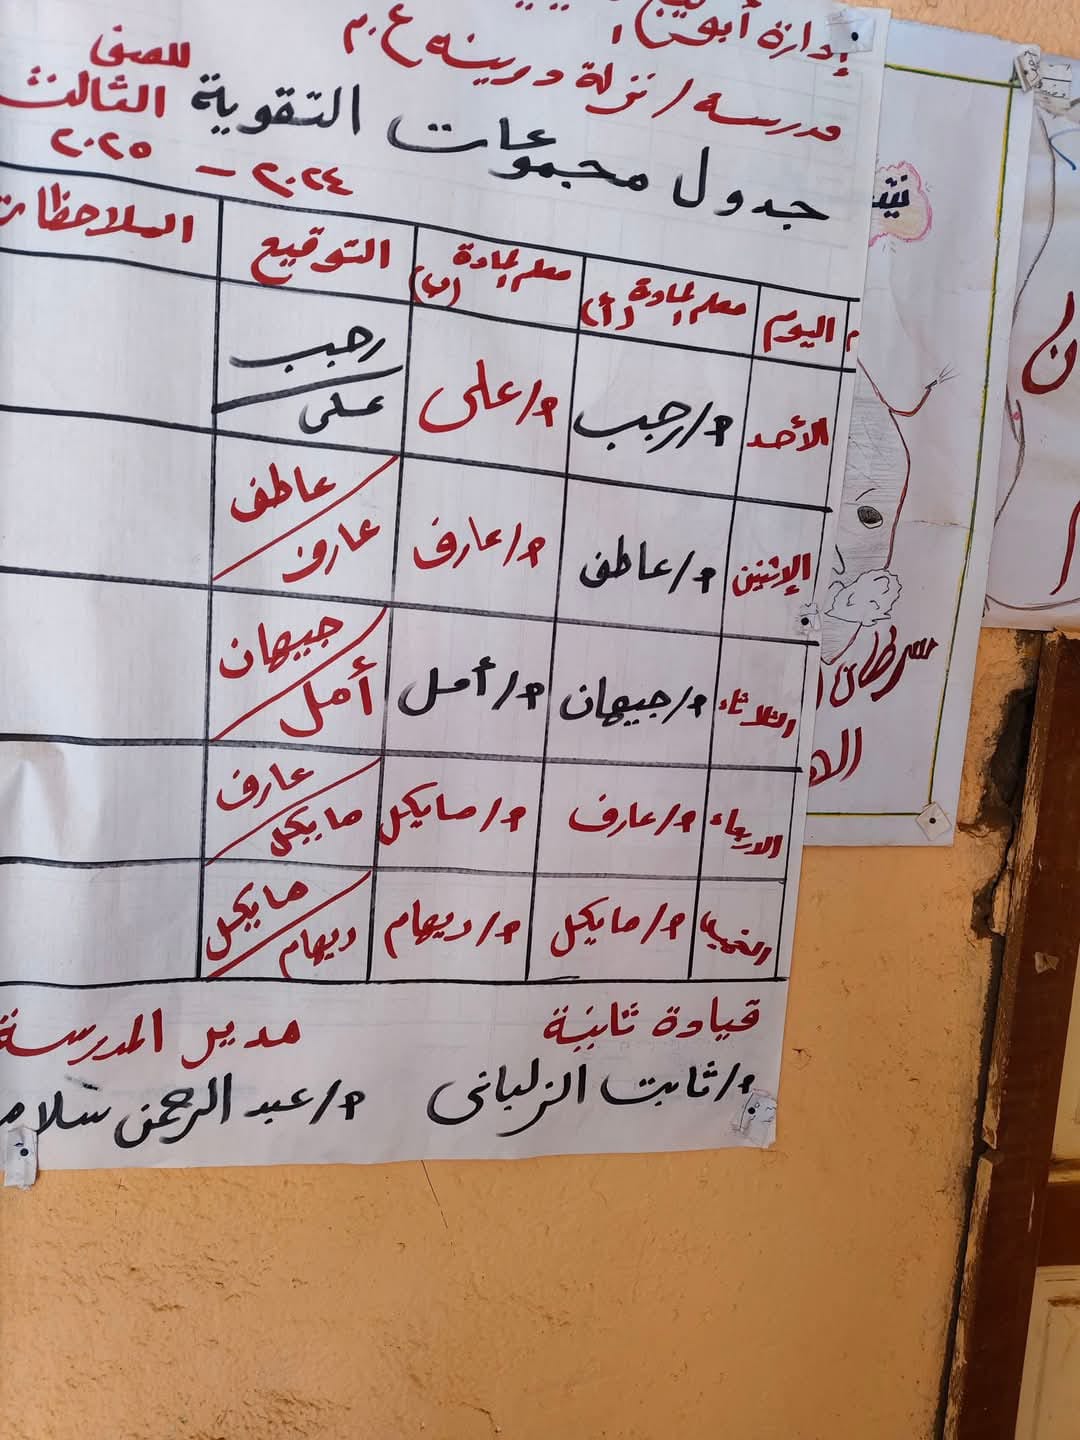 إدارة
مدرسة / نزلة درينه ع.م
جدول مجموعات التقوية للصف الثالث
٢٠٢٤ - ٢٠٢٥
م اليوم معلم المادة (أ) معلم المادة (ب) التوقيع الملاحظات
الأحد م/رجب م/على رجب على
الإثنين م/عاطف م/عارف عاطف عارف
الثلاثاء م/جيهان م/أمل جيهان أمل
الاربعاء م/عارف م/مايكل عارف مايكل
الخميس م/مايكل م/ديهام مايكل ديهام
قيادة ثانية مدير المدرسة
م/ثابت الزلبانى م/عبد الرحمن
سرطان